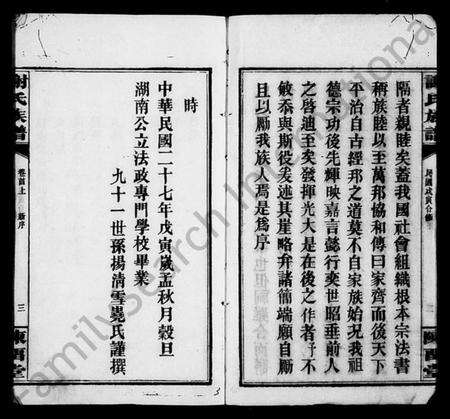 謝氏族譜
民國戊寅合修
二
陳留堂
隔者親睦矣蓋我國社會組織根本宗法書
稱族睦以至萬邦協和傳曰家齊而後天下
平治自古經邦之道莫不自家族始況我祖
德宗功後先輝映嘉言懿行奕世昭垂前人
之啓迪至矣發揮光大是在後之作者予不
敏忝與斯役爰述其崖略弁諸簡端願自勵
且以勵我族人焉是爲序
時
中華民國二十七年戊寅歲孟秋月穀旦
湖南公立法政專門學校畢業
九十一世孫揚清雪堯氏謹撰
謝氏族譜
卷首上
新序
三
陳留堂
FamilySearch International